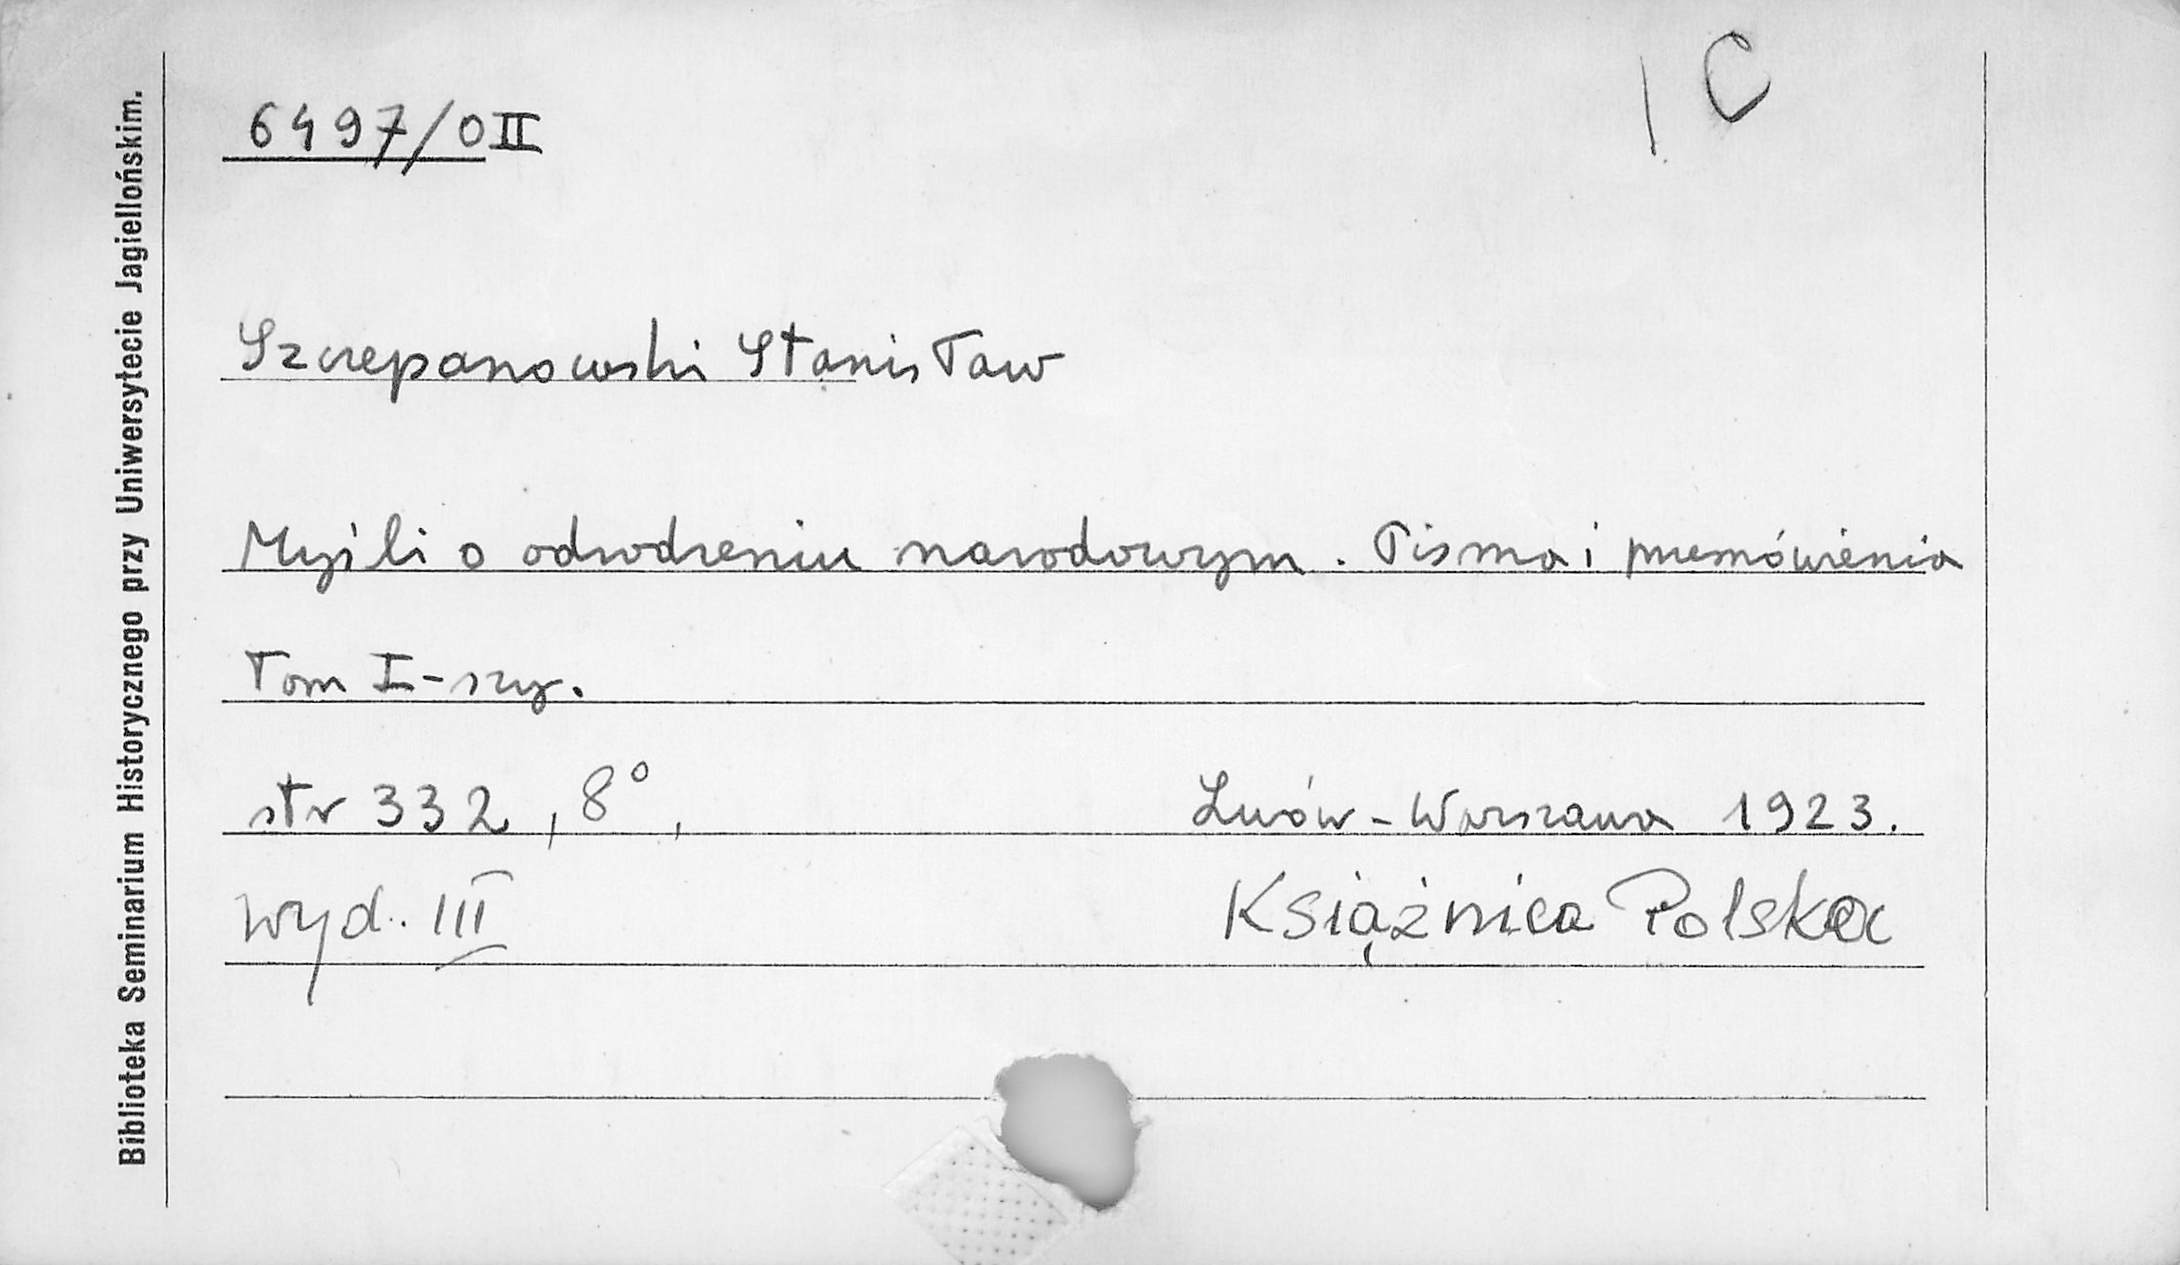 I C
6497/0II
Szczepanowski Stanisław
Myśli o odrodzeniu narodowym. Pisma i przemówienia
Tom I-szy.
str 332, 8°, Lwów - Warszawa 1923.
wyd. III Książnica Polska
Biblioteka Seminarium Historycznego przy Uniwersytecie Jagiellońskim.